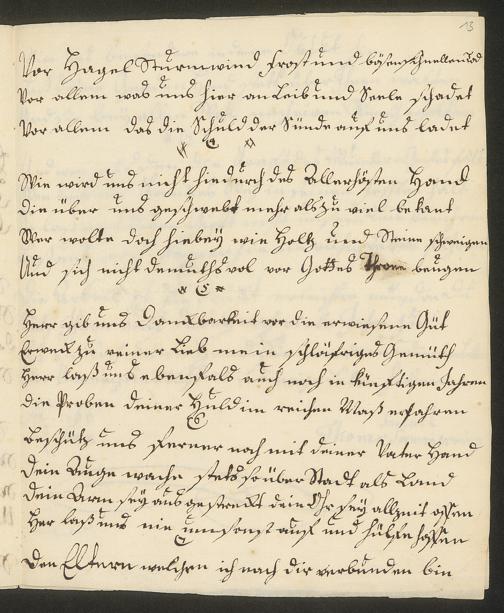 13
Vor Hagel Sturmwind Frost und bösen schnellen Tod
Vor allem was uns hier an Leib und Seele schadet
Vor allem das die Schuld der Sünde auf uns ladet
4
Wie wird uns nicht hiedurch des Allerhösten Hand
Die über uns geschwebt mehr als zu viel bekant
Wer wolte doch hiebey wie Holtz und Steine schweigen
Und sich nicht demuthsvol vor Gottes Throne beugen
5
Herr gib uns Danckbarkeit vor die erwiesene Güt
Erweck zu reiner Lieb mein schläfriges Gemüth
Herr laß uns ebenfals auch noch in künfftigen Jahren
die Proben deiner Huld in reichen Maß erfahren
6
Beschütz uns ferner noch mit deiner Vater Hand
dein Auge wache stets so über Stadt als Land
dein Arm sey ausgestreckt dein Ohr sey allzeit offen
Her laß uns nie umsonst auf und hülfe hoffen
Den Eltern welchen ich nach dir verbunden bin